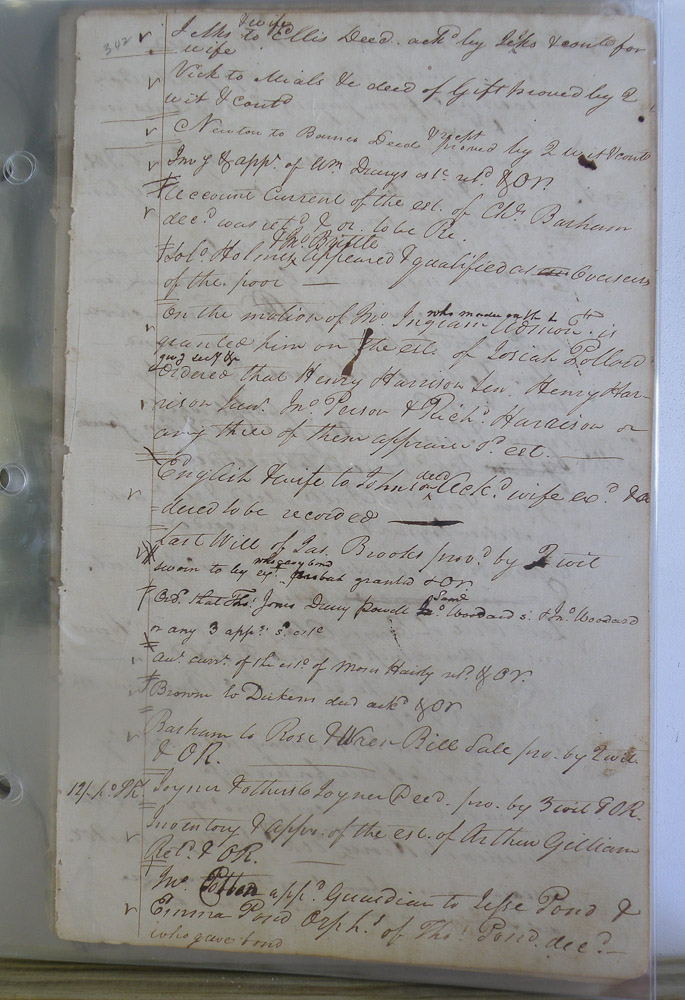 342
& wife
to Ellis Deed ackd by & contd for
wife
Vick to Mials &c deed of Gift proved by 2
wit & contd
Newton to Barnes Deed & rect proved by 2 wit & contd
Invy & appt. of Wm. Drurys este. retd. & OR
Account Current of the est. of Chs. Barham
decd. was retd. & or. to be Re.
& Jno Brittle
Holmes appeared & qualified as Overseers
of the poor —
who made oath &c
On the motion of Jno. Ingram Admon. is
granted him on the est. of Josiah Pollard
givg secy &c
Ordered that Henry Harrison Sen. Henry Har-
rison Junr. Jno. Person & Richd. Harrison or
any three of them appraise sd. est. —
English & wife to Johnson deed Ackd. wife exd. & or
dered to be recorded —
Last Will of Jas. Brooks provd. by 2 wit
who gave bond
sworn to by exr. Probat granted & OR
Ord. that Thos. Jones Drury Powell Saml Woodard s. & Jno. Woodard
or any 3 appr. s. este
Act. curr. of the este of Moses Hardy retd. & OR.
Brown to Dickens deed ackd & OR
Barham to Rose & Wren Bill Sale pro. by 2 wit.
& OR.
Joyner & others to Joyner Deed. pro. by 3 wit & OR.
Inventory & appt. of the est. of Arthur Gilliam
Retd. & OR. —
Jno. appd. Guardian to Jesse Pond &
Emma Pond Orphs. of Thos. Pond decd. —
who gave bond